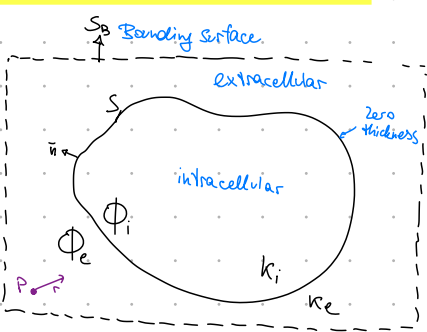 S_B Bounding surface
extracellular
S
zero
thickness
n̄
intracellular
ϕ_i
ϕ_e
P r
K_i
K_e